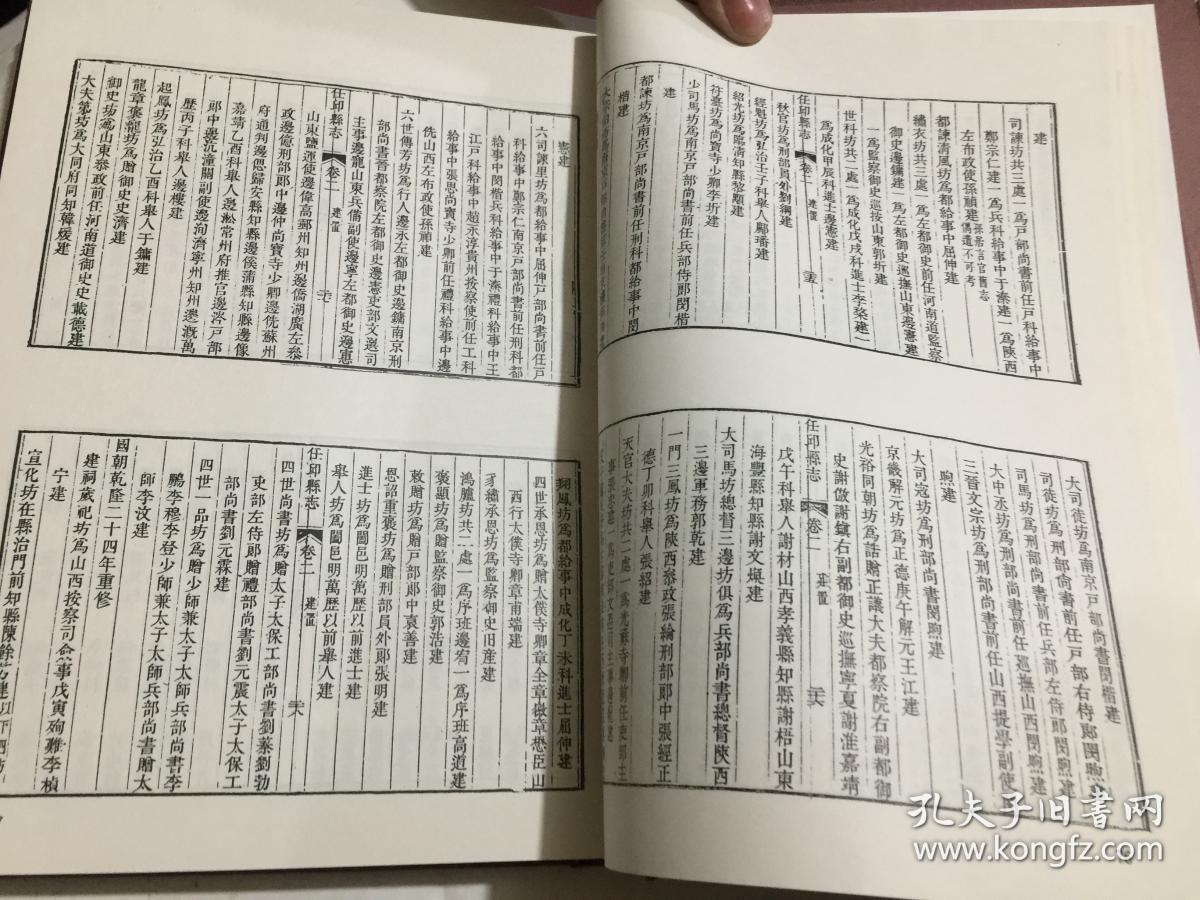 建
司諫坊共三處一爲戸部尚書前任戸科給事中
鄭宗仁建一爲兵科給事中于溱建一爲陝西
左布政使孫禎建
都諫清風坊爲都給事中屈伸建
繡衣坊共三處一爲左都御史前任河南道監察
御史邊鏞建一爲左都御史巡撫山東邊憲建
一爲監察御史巡按山東郭圻建
世科坊共二處一爲成化戊戌科進士李棨建一
爲成化甲辰科進士邊憲建
任邱縣志
卷二
建置
秋官坊爲刑部員外劉綱建
經魁坊爲弘治壬子科舉人鄺璠建
紹光坊爲臨清知縣黎顒建
符臺坊爲尚寶寺少卿李圻建
少司馬坊爲南京戸部尚書前任兵部侍郎閔楷
建
都諫坊爲南京戸部尚書前任刑科都給事中閔
楷建
憲建
六司諫里坊爲都給事中屈伸戸部尚書前任戸
科給事中鄭宗仁南京戸部尚書前任刑科都
給事中閔楷兵科給事中于溱禮科給事中王
江戸科給事中趙永淳貴州按察使前任工科
給事中張思尚寶寺少卿前任禮科給事中邊
侁山西左布政使孫禎建
六世傳芳坊爲行人邊永左都御史邊鏞南京刑
部尚書晉都察院左都御史邊憲吏部文選司
主事邊龍山東兵備副使邊寧左都御史邊憲
任邱縣志
卷二
建置
山東鹽運使邊偉高郵州知州邊僑湖廣左參
政邊億刑部郎中邊伸尚寶寺少卿邊侁蘇州
府通判邊偲歸安縣知縣邊俟蒲縣知縣邊像
嘉靖乙酉科舉人邊淞常州府推官邊
郎中邊汎潼關副使邊洵濟寧州知州邊溉萬
歷丙子科舉人邊樓建
起鳳坊爲弘治乙酉科舉人于鏞建
龍章褒寵坊爲贈御史史濟建
御史坊爲山東叅政前任河南道御史史載德建
大夫第坊爲大同府同知韓媛建
大司徒坊爲南京戸部尚書閔楷建
司徒坊爲刑部尚書前任戸部右侍郎閔煦建
司馬坊爲刑部尚書前任兵部左侍郎閔煦建
大中丞坊爲刑部尚書前任巡撫山西閔煦建
三晉文宗坊爲刑部尚書前任山西提學副使閔
煦建
大司寇坊爲刑部尚書閔煦建
京畿解元坊爲正德庚午解元王江建
光裕同朝坊爲誥贈正議大夫都察院右副都御
史謝倣謝鎮右副都御史巡撫寧夏謝淮嘉靖
任邱縣志
卷二
建置
戊午科舉人謝材山西孝義縣知縣謝梧山東
海豐縣知縣謝文燦建
大司馬坊總督三邊坊俱爲兵部尚書總督陝西
三邊軍務郭乾建
一門三鳳坊爲陝西叅政張綸刑部郎中張經正
德丁卯科舉人張紹建
天官大夫坊共二處一爲光祿寺卿前任吏部主
翔鳳坊爲都給事中成化丁未科進士屈伸建
四世承恩坊爲贈太僕寺卿章全章檄章懋臣山
西行太僕寺卿章甫端建
豸繡承恩坊爲監察御史旧産建
鴻臚坊共二處一爲序班邊宥一爲序班高道建
褒顯坊爲贈監察御史郭浩建
敕贈坊爲贈戸部郎中袁善建
恩詔重褒坊爲贈刑部員外郎張明建
進士坊爲闔邑明萬歷以前進士建
舉人坊爲闔邑明萬歷以前舉人建
任邱縣志
卷二
建置
四世尚書坊爲贈太子太保工部尚書劉棻劉勃
吏部左侍郎贈禮部尚書劉元震太子太保工
部尚書劉元霖建
四世一品坊爲贈少師兼太子太師兵部尚書李
鵬李穆李登少師兼太子太師兵部尚書贈太
師李汶建
國朝乾隆二十四年重修
建祠歲祀坊爲山西按察司僉事戊寅殉難李楨
宁建
宣化坊在縣治門前知縣陳餘芳建以下四坊
孔夫子旧书网
www.kongfz.com